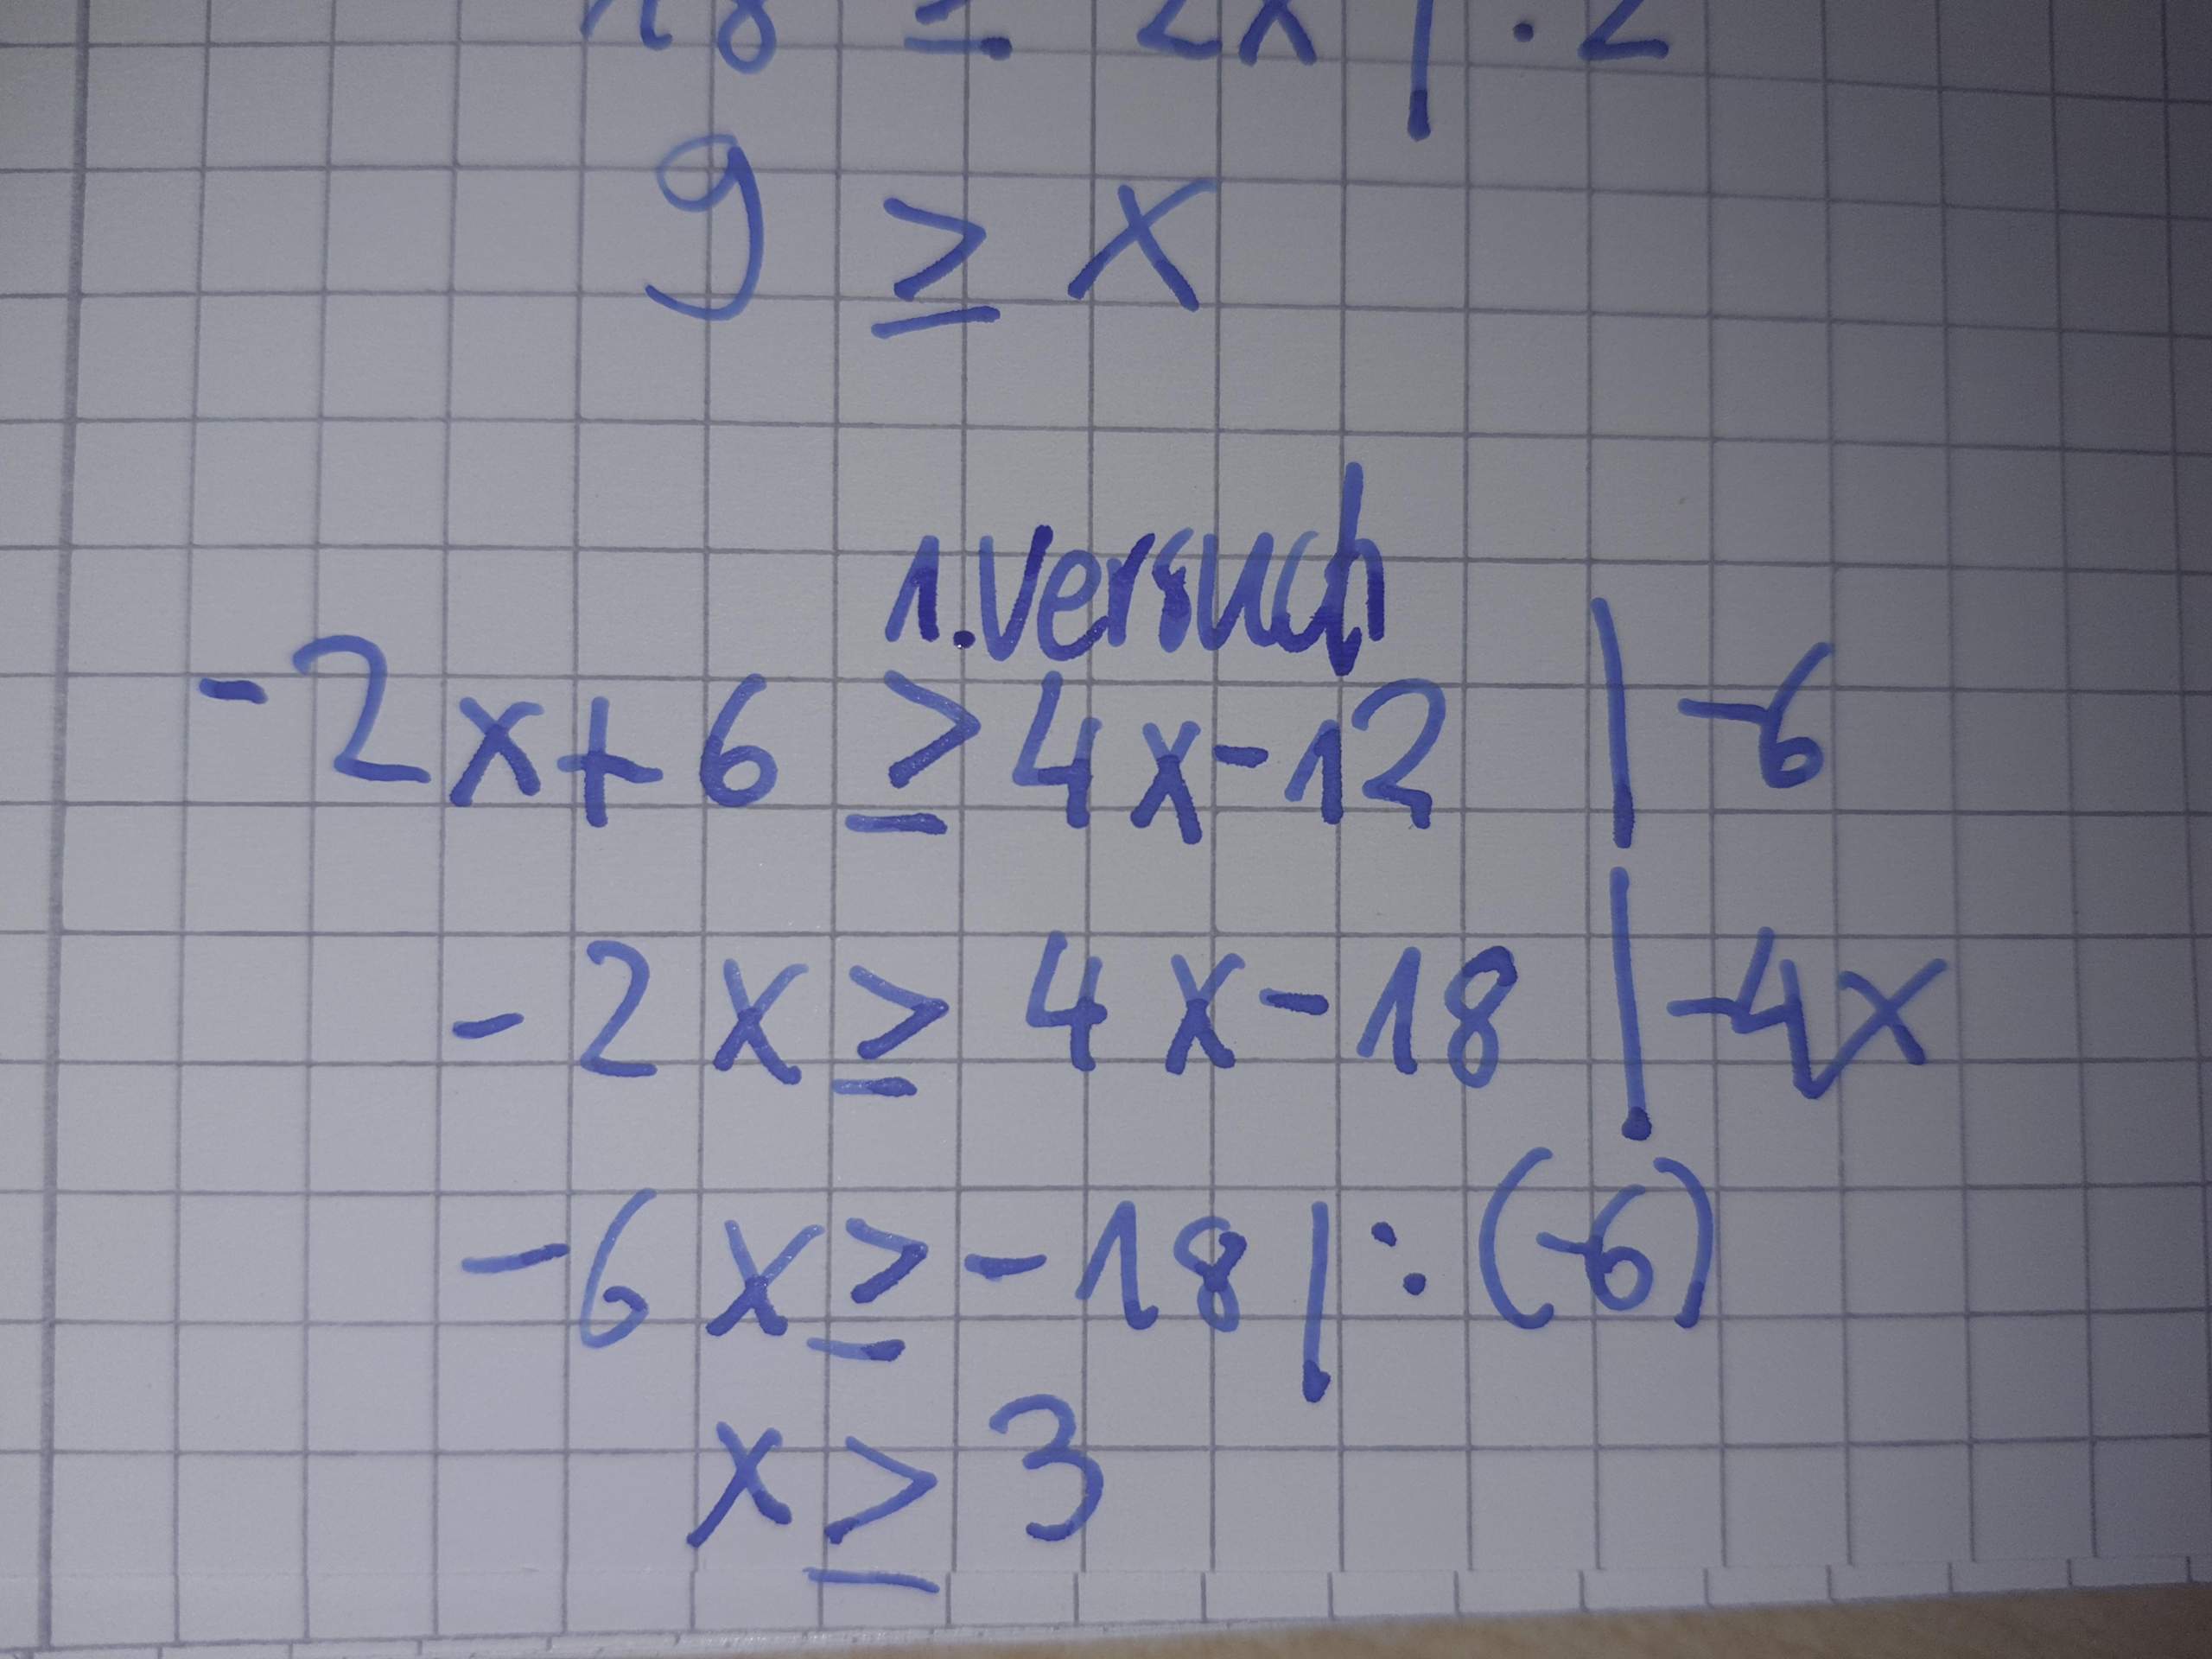 18 ≥ 2x | : 2
9 ≥ x
1. Versuch
-2x+6 ≥ 4x-12 | -6
-2x ≥ 4x-18 | -4x
-6x ≥ -18 | : (-6)
x ≥ 3